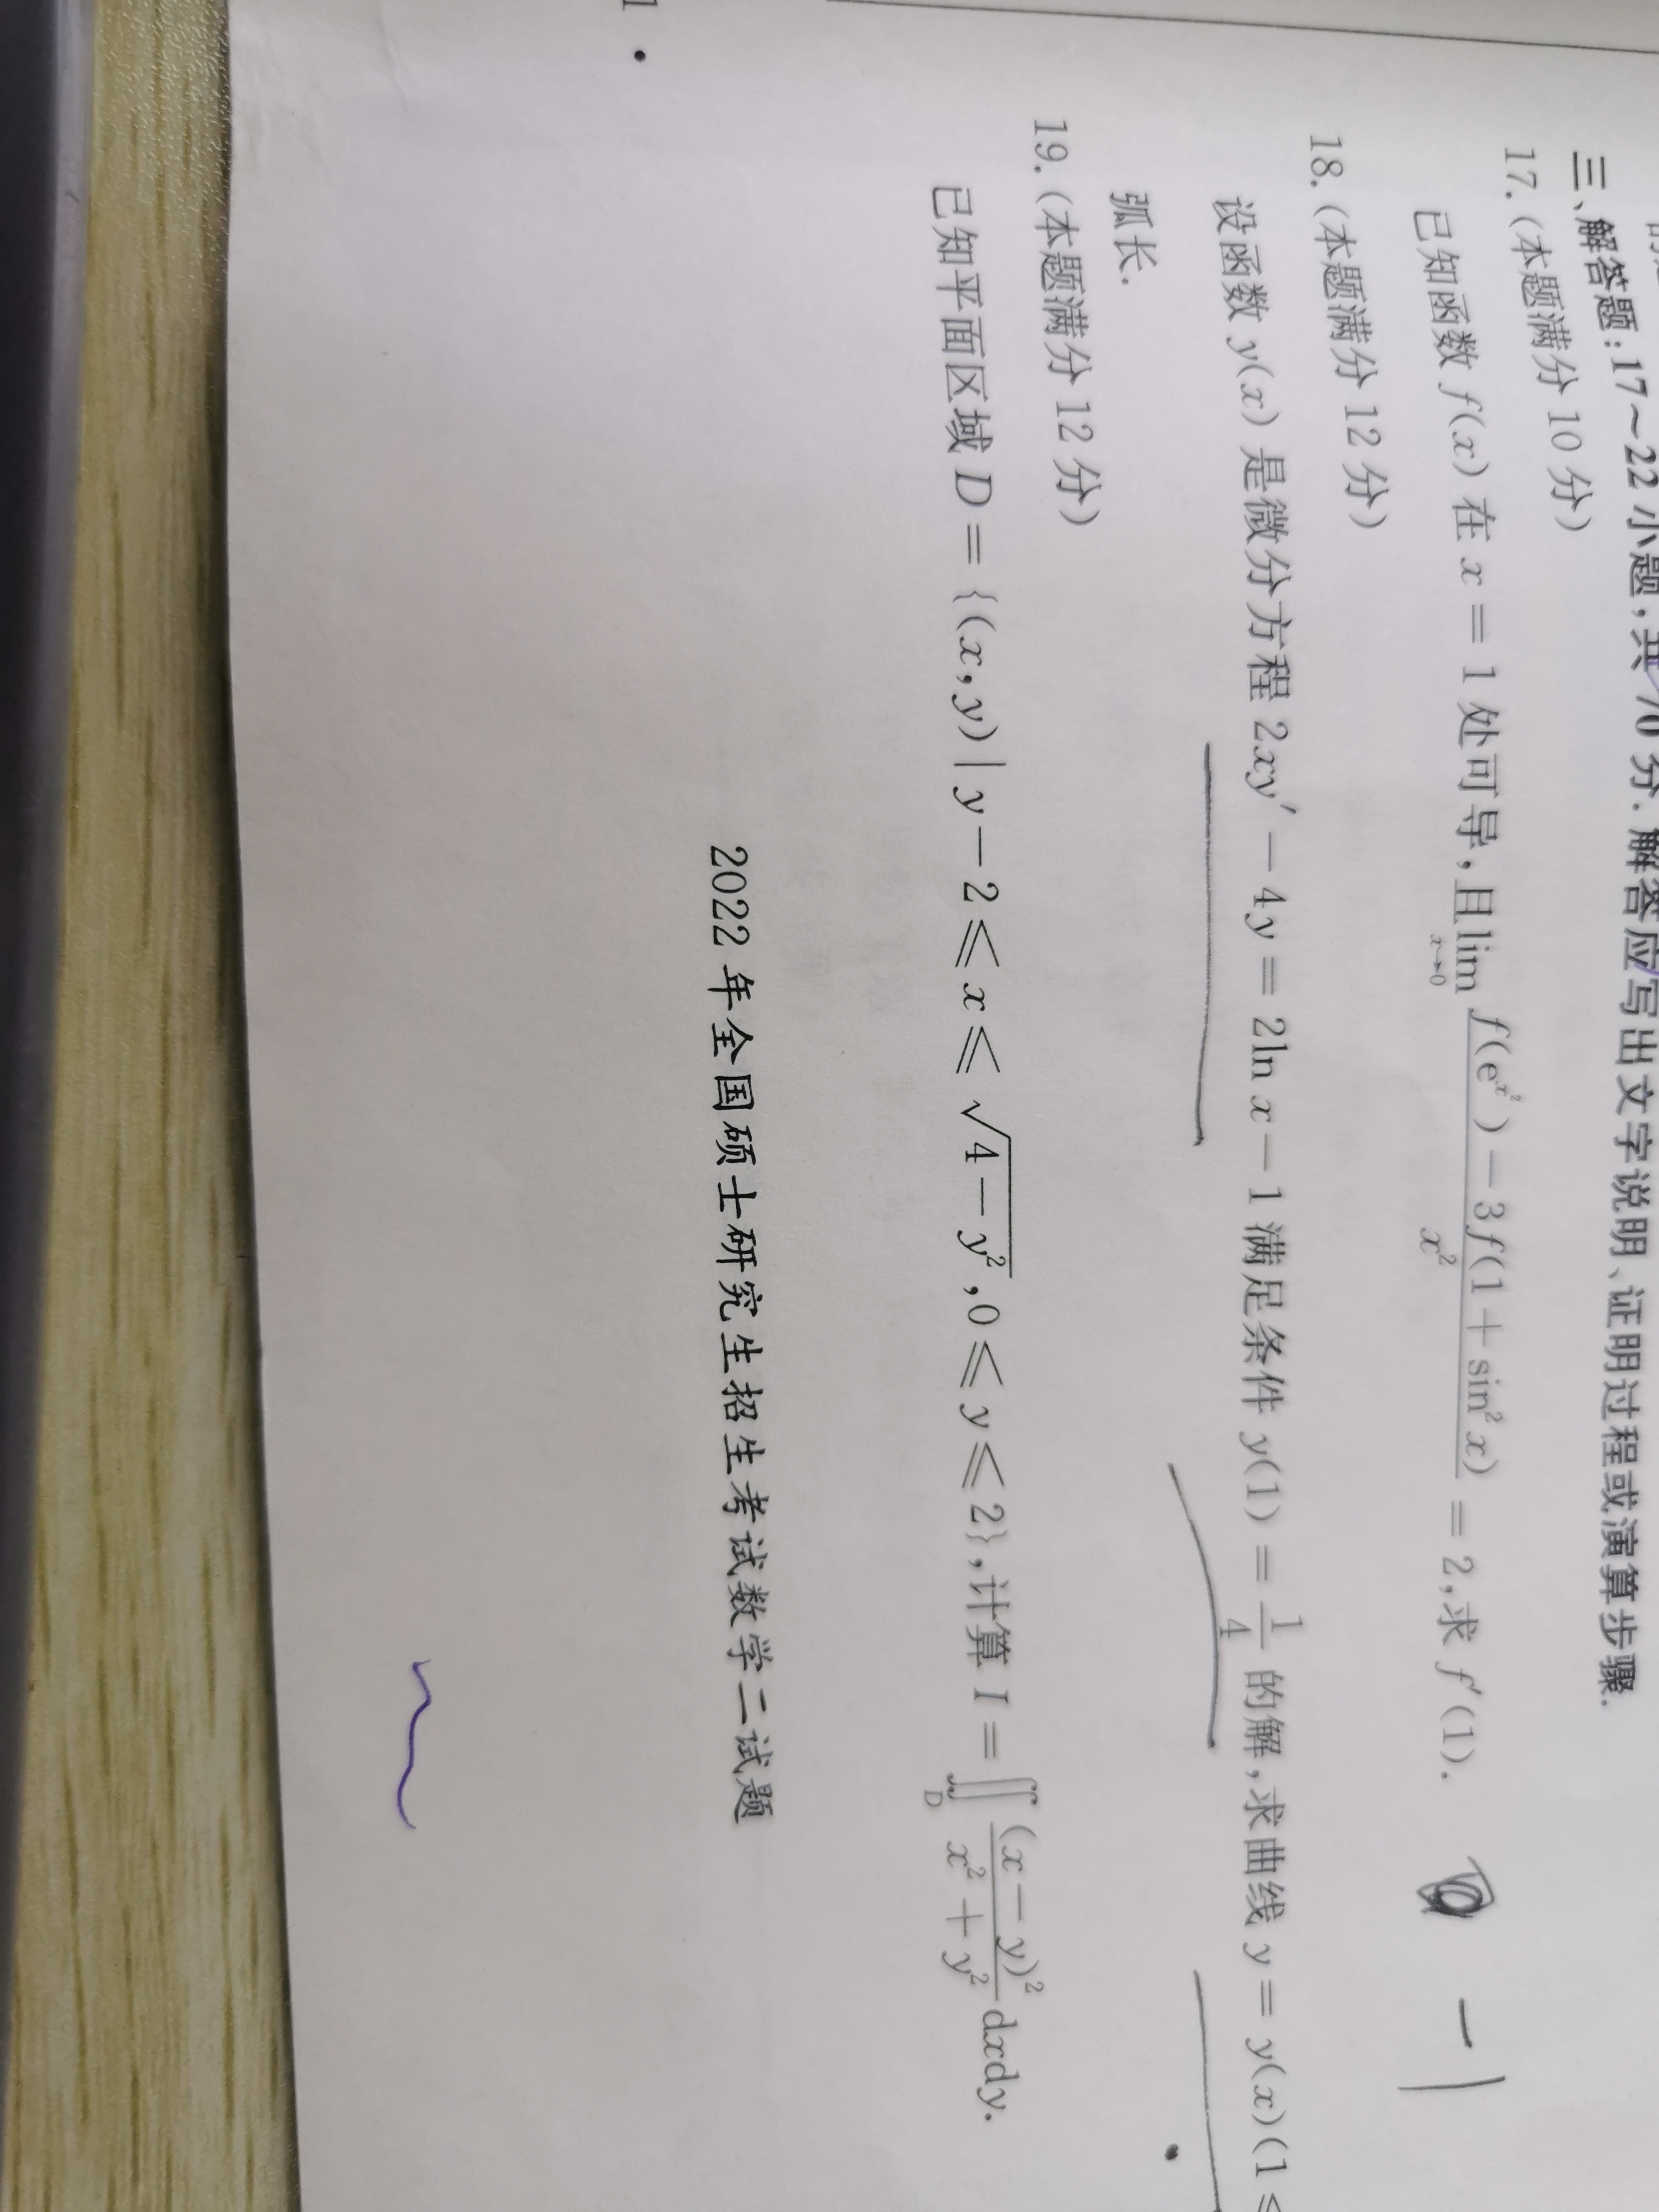 三、解答题:17～22小题,共70分.解答应写出文字说明、证明过程或演算步骤.
17.(本题满分10分)
已知函数 f(x) 在 x = 1 处可导,且 lim_{x→0} \frac{f(e^{x^2}) - 3f(1 + sin^2 x)}{x^2} = 2,求 f'(1).
18.(本题满分12分)
设函数 y(x) 是微分方程 2xy' - 4y = 2ln x - 1 满足条件 y(1) = \frac{1}{4} 的解,求曲线 y = y(x)(1 ≤
弧长.
19.(本题满分12分)
已知平面区域 D = {(x,y) | y - 2 ≤ x ≤ \sqrt{4 - y^2},0 ≤ y ≤ 2},计算 I = ∬_D \frac{(x - y)^2}{x^2 + y^2} dxdy.
2022年全国硕士研究生招生考试数学二试题
1 ·